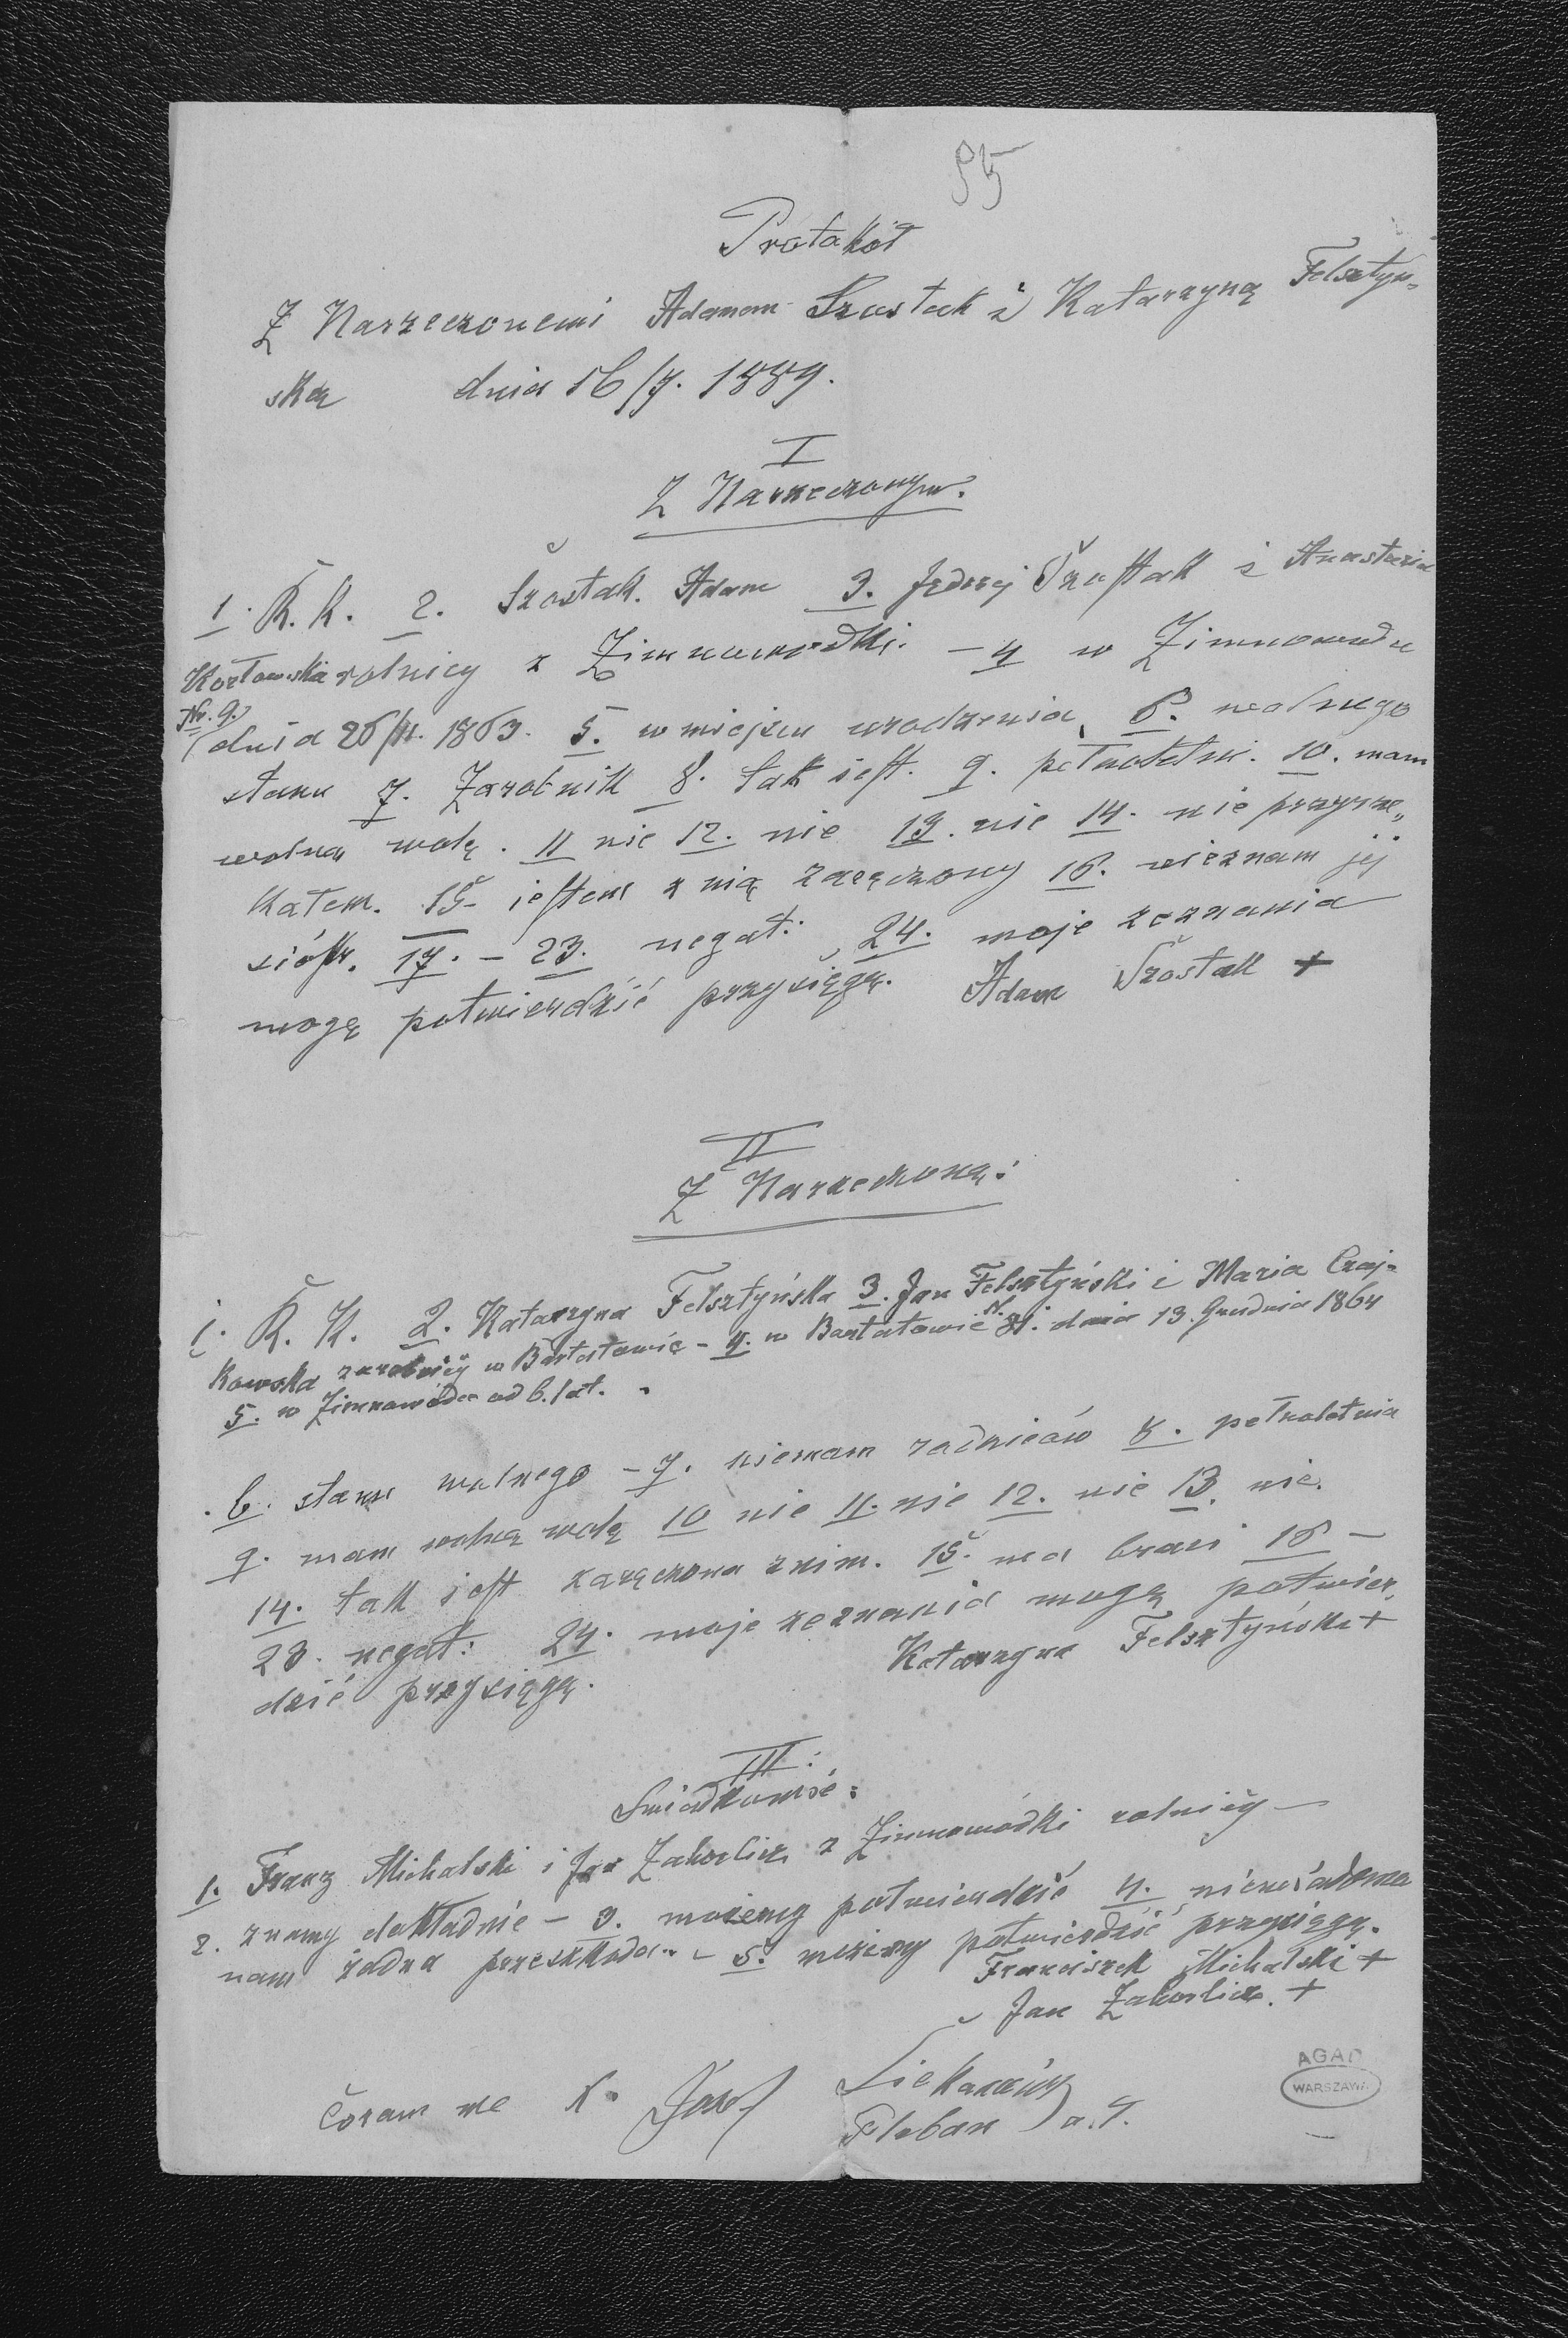 95
Protokół
Z Narzeczonemi Adamem Szostak i Katarzyną Felsztyń-
ską dnia 16/7. 1889.
I
Z Narzeczonym.
1. Ř. K. 2. Szostak Adam 3. Jędrzej Szostak i Anastazia
Kozłowska rolnicy z Zimnowodki. – 4 w Zimnowodce
Nr. 9.
dnia 26/11. 1863. 5. w miejscu urodzenia, 6. wolnego
stanu 7. Zarobnik 8. tak jest. 9. pełnoletni. 10. mam
wolną wolę. 11 nie 12. nie 13. nie 14. nie przyrze„
kałem. 15. jestem z nią zaręczony 16. nieznam jej
sióstr. 17. – 23. negat: 24. moje zeznania
mogę potwierdzić przysięgą. Adam Szostak +
II
Z Narzeczoną:
1. Ř. K. 2. Katarzyna Felsztyńska 3. Jan Felsztyński i Maria Czaj-
kowska zarobnicy w Bartatowie – 4. w Bartatowie dnia 13. Grudnia 1864
5. w Zimnowodce od 6. lat.
6. stanu wolnego – 7. niemam rodziców 8. pełnoletnia
9. mam wolną wolę 10 nie 11. nie 12. nie 13. nie.
14. tak jest zaręczona z nim. 15. ma braci 16 –
23. negat: 24. moje zeznania mogę potwier„
dzić przysięgą. Katarzyna Felsztyńska +
III:
Swiadkowie:
1. Franz Michalski i Jan Zahorlicz z Zimnowodki rolnicy –
2. znamy dokładnie – 3. możemy potwierdzić 4. niewiadoma
nam żadna przeszkoda. – 5. możemy potwierdzić przysięgą.
Franciszek Michalski +
Jan Zahorlicz. +
Coram me X. Józef
Pleban a. t.
AGAD
WARSZAWA